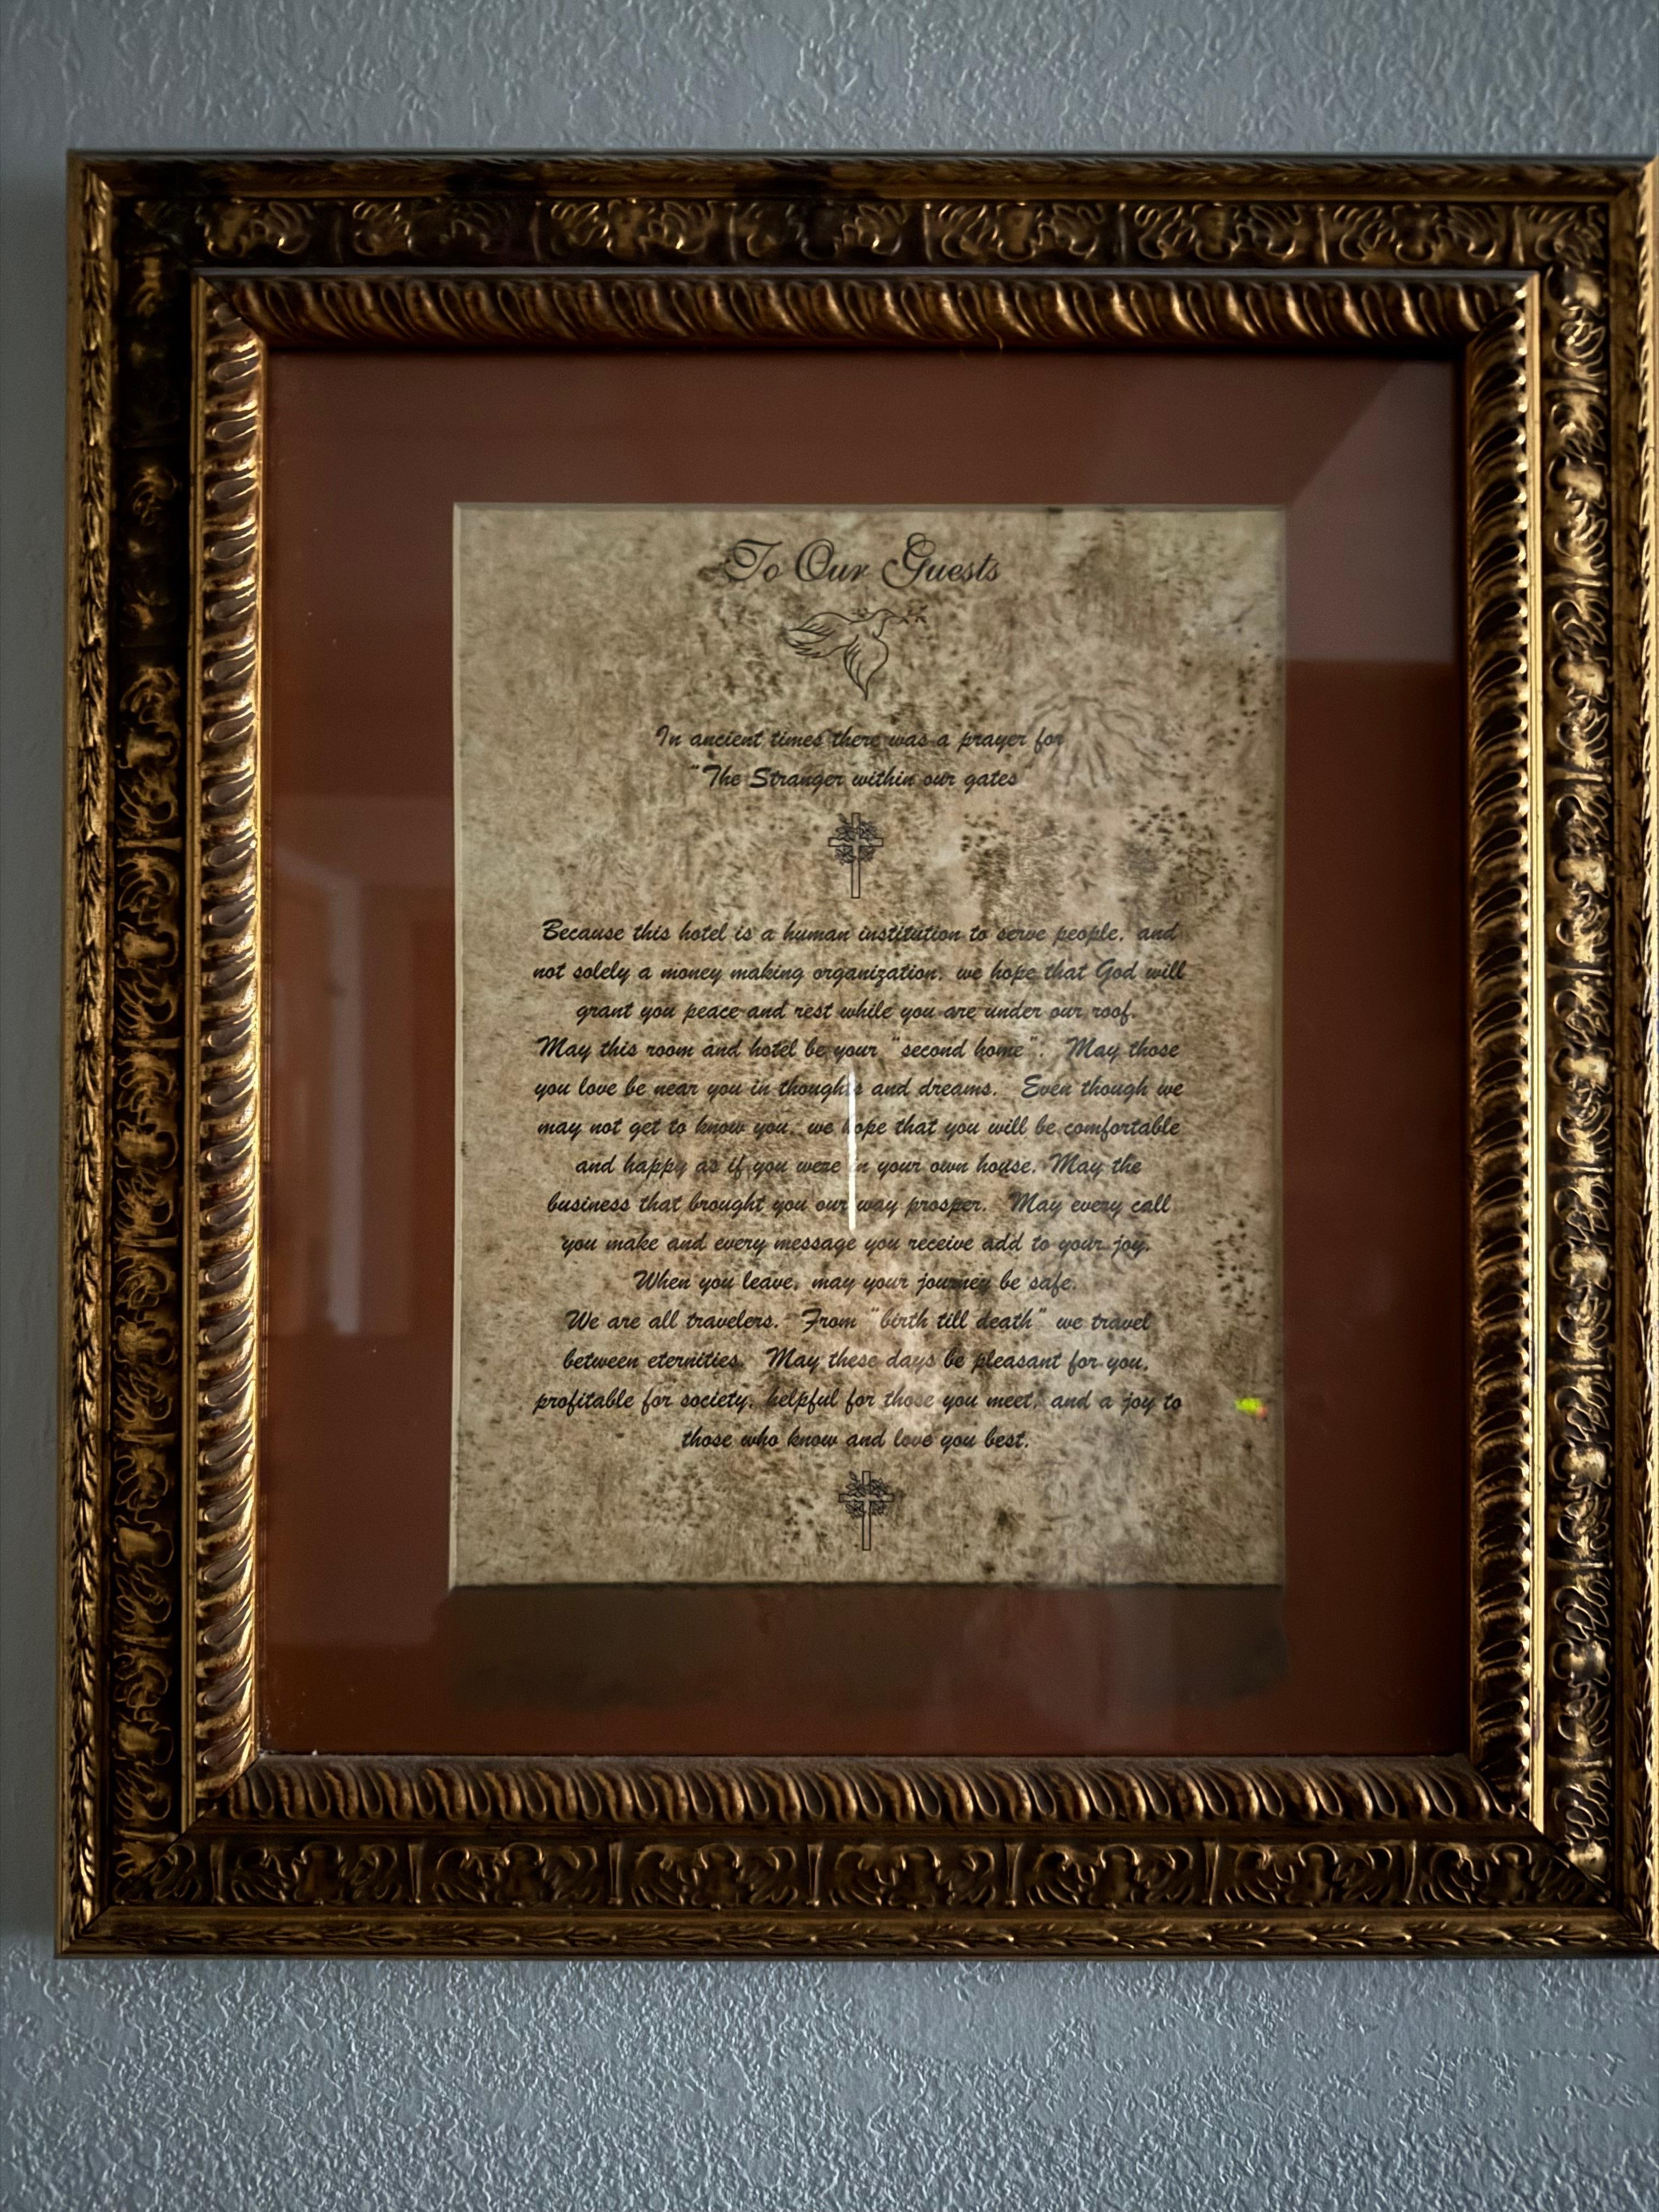 To Our Guests
In ancient times there was a prayer for
"The Stranger within our gates
Because this hotel is a human institution to serve people, and
not solely a money making organization, we hope that God will
grant you peace and rest while you are under our roof.
May this room and hotel be your "second home". May those
you love be near you in thoughts and dreams. Even though we
may not get to know you, we hope that you will be comfortable
and happy as if you were in your own house. May the
business that brought you our way prosper. May every call
you make and every message you receive add to your joy.
When you leave, may your journey be safe.
We are all travelers. From "birth till death" we travel
between eternities. May these days be pleasant for you,
profitable for society, helpful for those you meet, and a joy to
those who know and love you best.